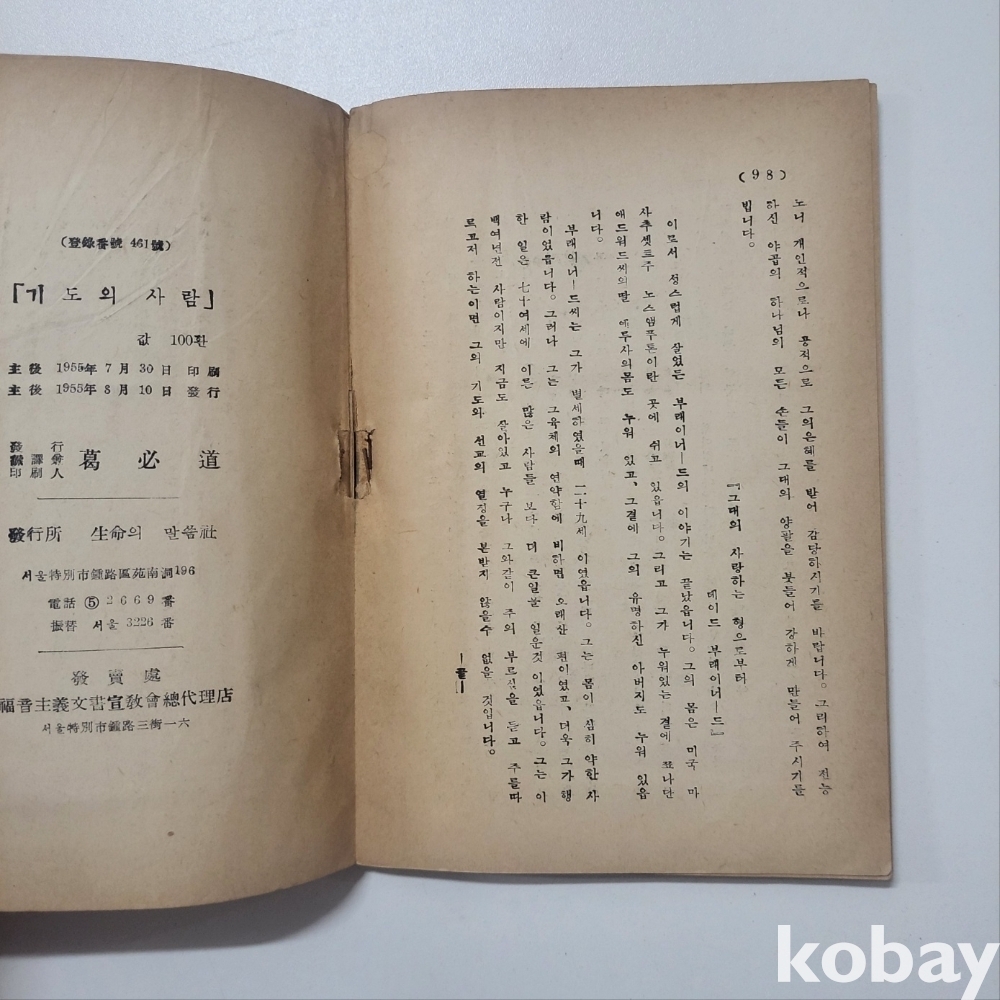 (98)
노니 개인적으로나 공적으로 그의은혜를 받어 감당하시기를 바랍니다。그리하여 전능
하신 야곱의 하나님의 모든 손들이 그대의 양팔을 붓들어 강하게 만들어 주시기를
빕니다。
『그대의 사랑하는 형으로부터
데이드 부래이너—드』
이로서 성스럽게 살었든 부래이너—드의 이야기는 끝났읍니다。그의 몸은 미국 마
사추셋트주 노스앰푸톤이란 곳에 쉬고 있읍니다。그리고 그가 누워있는 곁에 죠나단
애드워드씨의딸 에투사의몸도 누워 있고、그곁에 그의 유명하신 아버지도 누워 있읍
니다。
부래이너—드씨는 그가 별세하였을때 二十九세 이였읍니다。그는 몸이 심히 약한 사
람이였읍니다。그러나 그는 그육체의 연약함에 비하면 오래산 편이였고、더욱 그가행
한 일은 七十여세에 이른 많은 사람들 보다 더 큰일을 일운것 이였읍니다。그는 이
백여년전 사람이지만 지금도 살아있고 누구나 그와같이 주의 부르심을 듣고 주를따
르고저 하는이면 그의 기도와 선교의 열정을 본받지 않을수 없을 것입니다。
—끝—
(登錄番號 461號)
「기도의 사람」
값 100환
主後 1955年 7月 30日 印刷
主後 1955年 8月 10日 發行
發行
飜譯兼
印刷人
葛必道
發行所 生命의 말씀社
서울特別市鍾路區苑南洞196
電話 ⑤ 2669番
振替 서울 3226番
發賣處
福音主義文書宣敎會總代理店
서울特別市鍾路三街一六
kobay